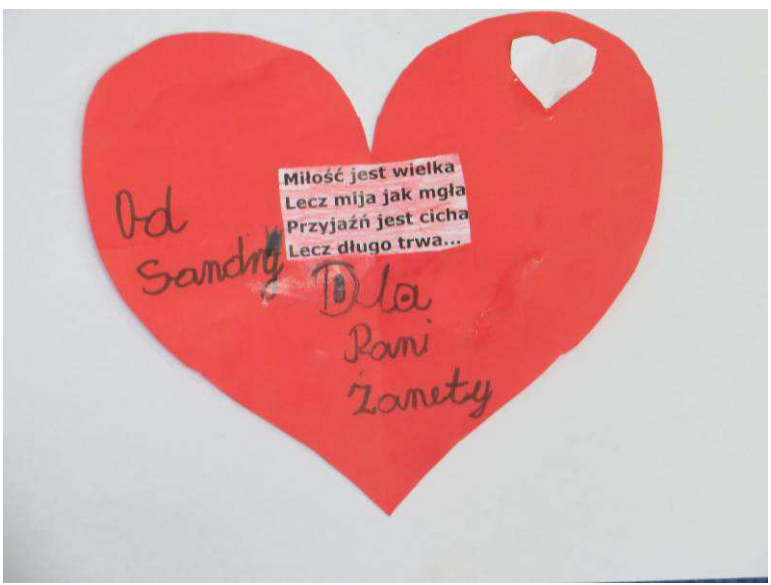 Miłość jest wielka
Lecz mija jak mgła
Przyjaźń jest cicha
Lecz długo trwa...
Od
Sandry
Dla
Pani
Żanety